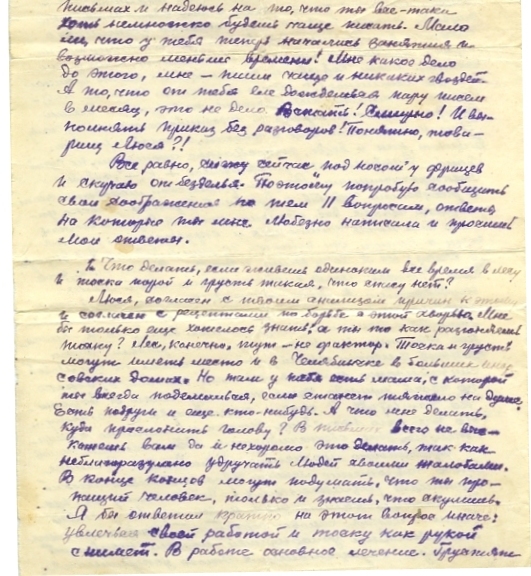 письмах и надеюсь на то, что ты все-таки
хоть немножко будешь чаще писать. Мало
ли, что у тебя теперь начались занятия и
возможно меньше времени! Мне какое дело
до этого, мне – пиши чаще и никаких гвоздей.
А то, что от тебя еле дождёшься пару писем
в месяц, это не дело. Встать! Смирно! И вы-
полнять приказ без разговоров! Понятно, това-
рищ Люся?!
Все равно, сижу сейчас под носом у фрицев
и скучаю от безделья. Поэтому попробую сообщить
свои соображения по тем 11 вопросам, ответы
на которые ты мне любезно написала и просишь
мои ответы.
1. Что делать, если живешь одиноким все время в лесу
и тоска порой и грусть такая, что спасу нет?
Люся, согласен с твоим списком причин к этому
и согласен с рецептами по борьбе с этой хворью. Мне
бы только еще хотелось знать, а ты то как разгоняешь
тоску? Лес, конечно, тут – не фактор. Тоска и грусть
могут иметь место и в Челябинске в больших
совских домах. Но там у тебя есть мама, с которой
ты всегда поделишься, если станет тяжело на душе.
Есть подруги и еще кто-нибудь. А что мне делать,
куда преклонить голову? В письмах всего не вы-
кажешь вам да и нехорошо это делать, так как
неблагоразумно удручать людей своими жалобами.
В конце концов могут подумать, что ты про-
пащий человек, только и знаешь, что скулишь.
Я бы ответил кратко на этот вопрос иначе:
увлечься своей работой и тоску как рукой
снимет. В работе основное лечение.